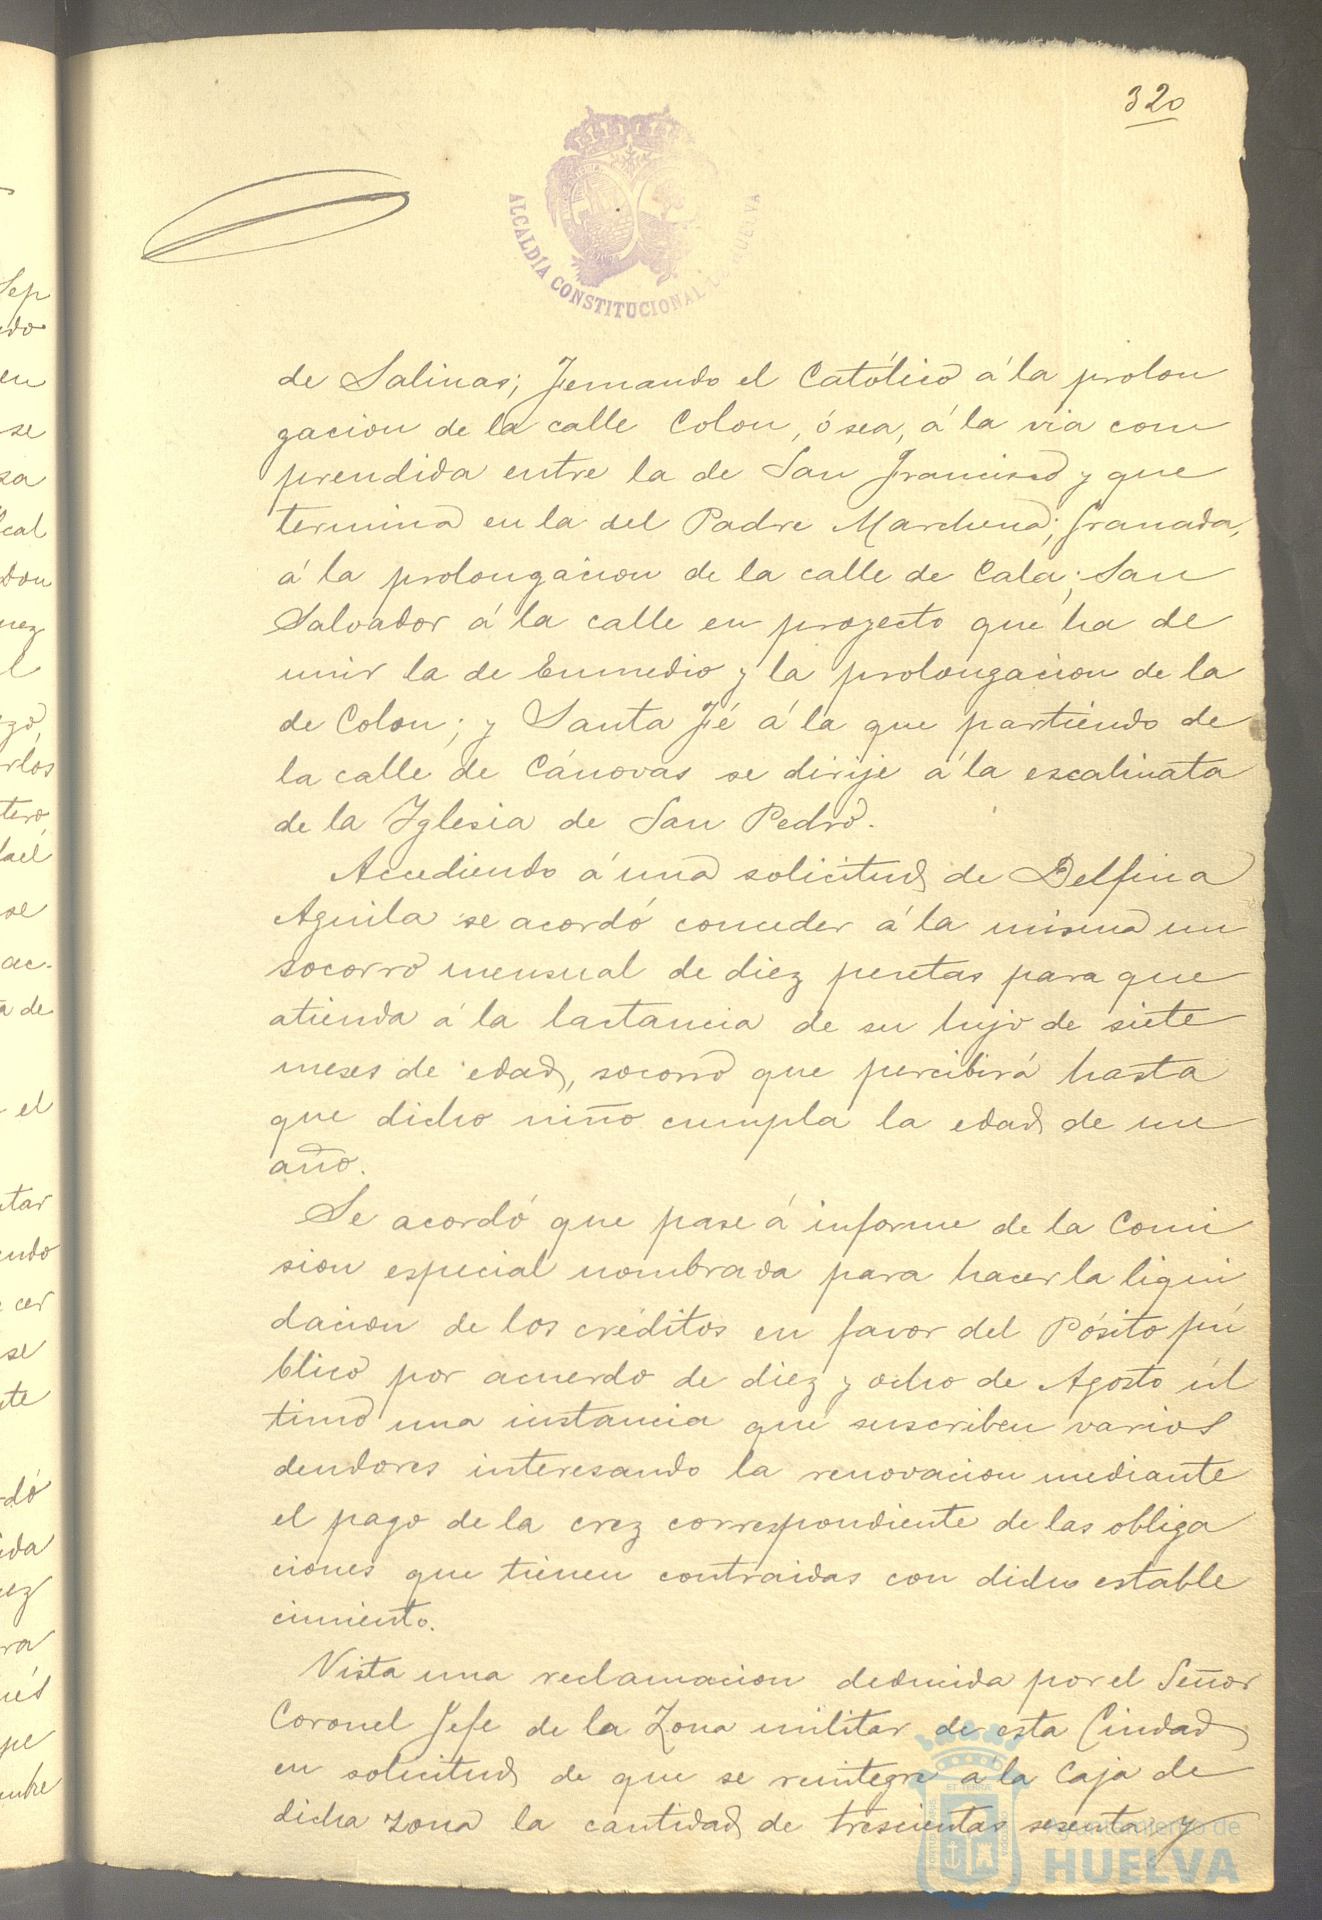 320
ALCALDÍA CONSTITUCIONAL DE HUELVA
de Salinas; Fernando el Católico á la prolon
gacion de la calle Colon, ó sea, á la via com
prendida entre la de San Francisco y que
termina en la del Padre Marchena; Granada,
á la prolongacion de la calle de Cala; San
Salvador á la calle en proyecto que ha de
unir la de Enmedio y la prolongacion de la
de Colon; y Santa Fé á la que partiendo de
la calle de Cánovas se dirije á la escalinata
de la Iglesia de San Pedro.
Accediendo á una solicitud de Delfina
Aguila se acordó conceder á la misma un
socorro mensual de diez pesetas para que
atienda á la lactancia de su hijo de siete
meses de edad, socorro que percibirá hasta
que dicho niño cumpla la edad de un
año.
Se acordó que pase á informe de la Comi
sion especial nombrada para hacer la liqui
dacion de los créditos en favor del Pósito pú
blico por acuerdo de diez y ocho de Agosto úl
timo una instancia que suscriben varios
deudores interesando la renovacion mediante
el pago de la crez correspondiente de las obliga
ciones que tienen contraidas con dicho estable
cimiento.
Vista una reclamacion deducida por el Señor
Coronel Jefe de la Zona militar de esta Ciudad
en solicitud de que se reintegre á la Caja de
dicha zona la cantidad de trescientas sesenta y
Ayuntamiento de
HUELVA